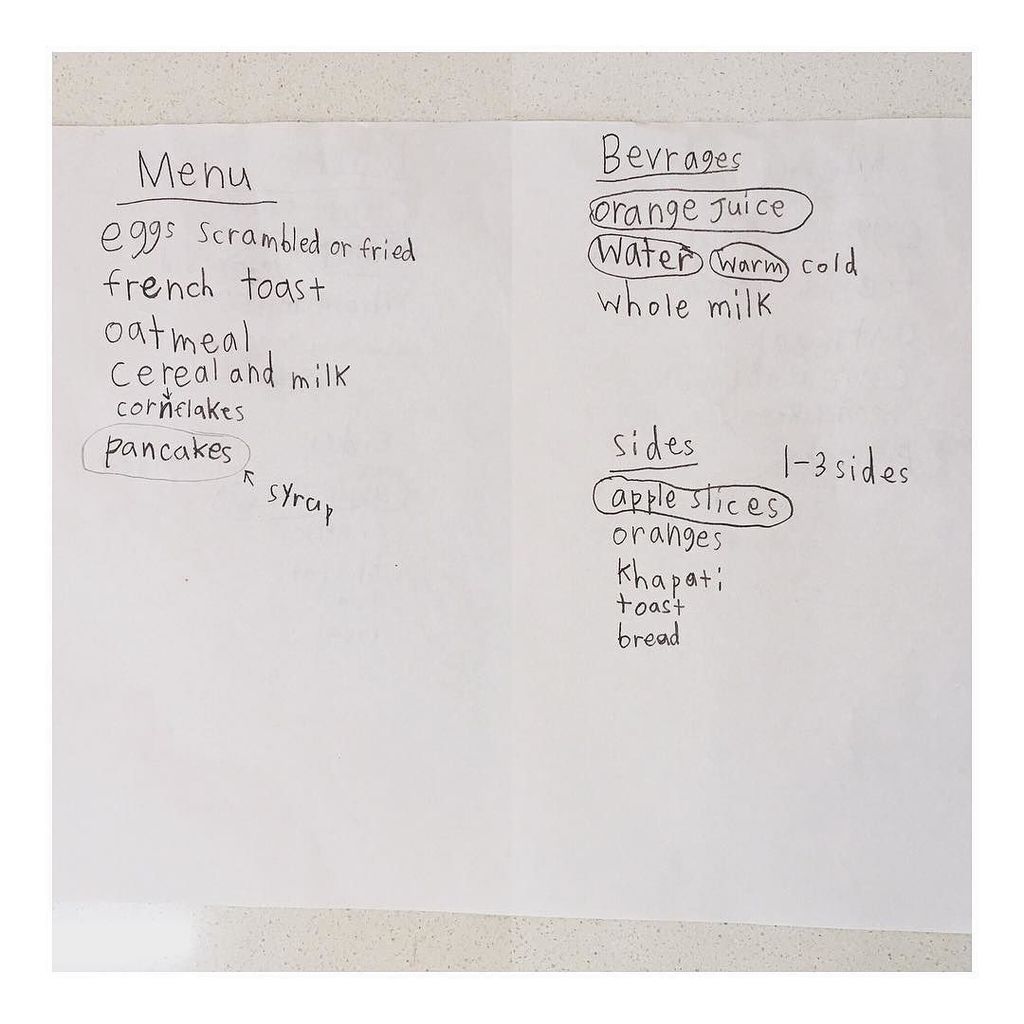 Menu
eggs scrambled or fried
french toast
oatmeal
cereal and milk
cornflakes
pancakes
syrap
Bevrages
orange juice
water warm cold
whole milk
sides
1-3 sides
apple slices
oranges
khapati
toast
bread